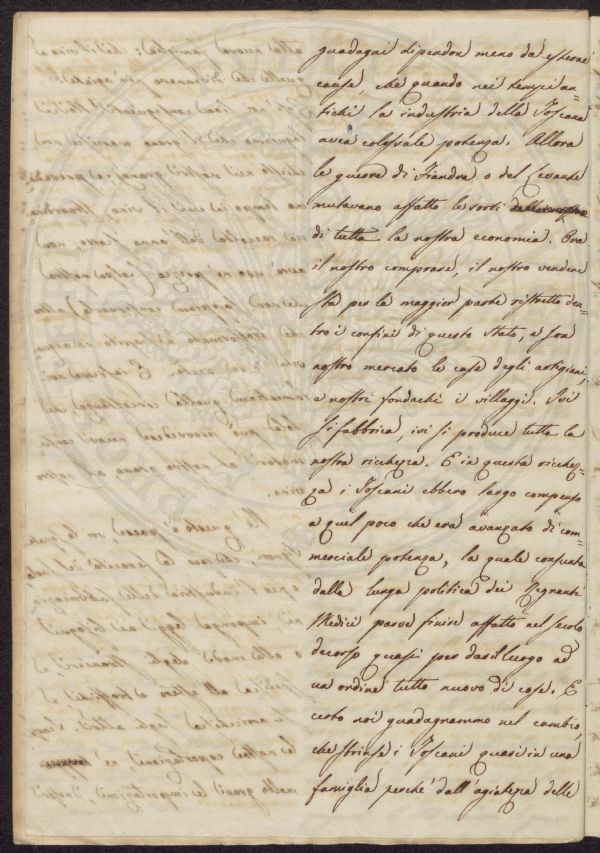 guadagni dipendon meno da esterne
cause, che quando nei tempi an=
tichi la industria della Toscana
avea colossale potenza. Allora
le guerre di Fiandra o del Levante
mutavano affatto le sorti
di tutta la nostra economia. Ora
il nostro comprare, il nostro vendere
sta per la maggior parte ristretto den=
tro i confini di questo Stato, e son
nostro mercato le case degli artigiani,
e nostri fondachi i villaggi. Ivi
si fabbrica, ivi si produce tutta la
nostra ricchezza. E in questa ricchez=
za i Toscani ebbero largo compenso
a quel poco che era avanzato di com=
merciale potenza, la quale consunta
dalla lunga politica dei Regnanti
Medici parve finire affatto nel secolo
decorso quasi per dar luogo ad
un ordine tutto nuovo di cose. E
certo noi guadagnammo nel cambio,
che strinse i Toscani quasi in una
famiglia perché dall'agiatezza delle